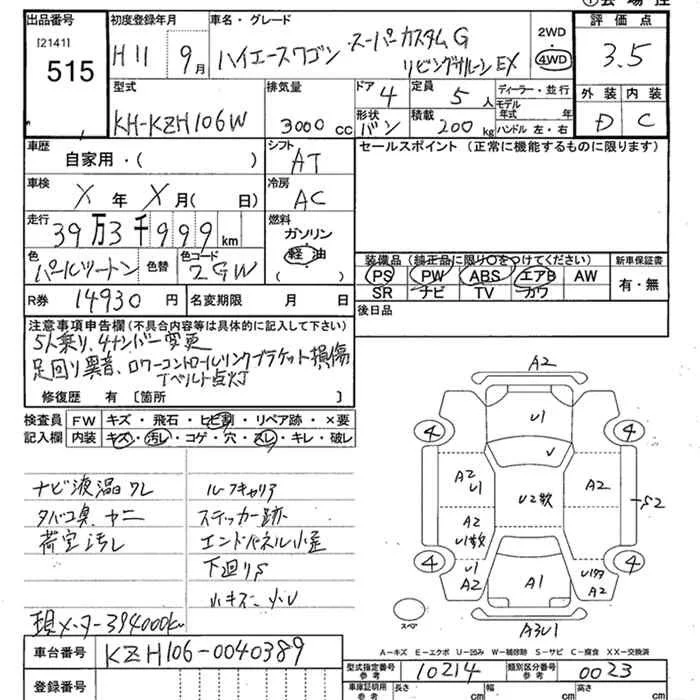 出品番号
[2141]
515
初度登録年月
H11 9月
車名・グレード
ハイエースワゴン スーパーカスタムG
リビングサルーンEX
2WD
4WD
評価点
3.5
外装 内装
D C
型式
KH-KZH106W
排気量
3000 cc
ドア
4
形状
バン
定員
5 人
積載
200 kg
ディーラー・並行
モデル
年式 年
ハンドル 左・右
車歴
自家用・( )
シフト
AT
セールスポイント (正常に機能するものに限ります)
車検
X 年 X 月( 日)
冷房
AC
走行
39万3千999km
燃料
ガソリン
軽油
( )
色
パールツートン
色替
色コード
2GW
装備品 (純正品に限り○をつけてください)
PS PW ABS エアB AW
SR ナビ TV カワ
新車保証書
有・無
R券 14930 円
名変期限 月 日
後日品
注意事項申告欄(不具合内容等は具体的に記入して下さい)
5人乗り、4ナンバー変更
足回り異音、ロワーコントロールリンクブラケット損傷
Tベルト点灯
修復歴 有〔箇所 〕
検査員
記入欄
FW キズ・飛石・ヒビ割・リペア跡・×要
内装 キズ・汚レ・コゲ・穴・スレ・キレ・破レ
ナビ液晶ワレ
タバコ臭、ヤニ
荷室汚レ
現メーター394000km
ルーフキャリア
ステッカー跡
エンドパネル小歪
下廻りS
小キズ、小U
A2
4
U1
4
A2
U1
U2数
A2
S2
A2
U1数
4
U1
A2
A1
A2
4
スペア
A3U1
A-キズ E-エクボ U-凹み W-補修跡 S-サビ C-腐食 XX-交換済
車台番号 KZH106-0040389
登録番号
型式指定番号
参考
10214
類別区分番号
参考
0023
車庫証明用
参考
長さ 幅 高さ